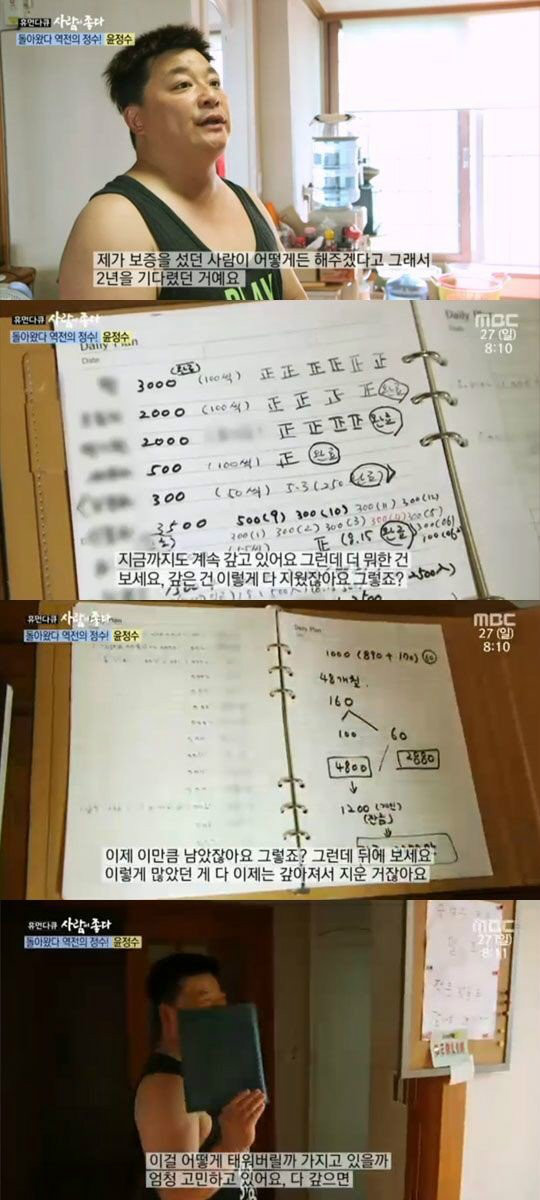 휴먼다큐 사람이 좋다
돌아왔다 역전의 정수! 윤정수
제가 보증을 섰던 사람이 어떻게든 해주겠다고 그래서
2년을 기다렸던 거예요
휴먼다큐 사람이 좋다
돌아왔다 역전의 정수! 윤정수
MBC
27(일)
8:10
Daily Plan
Date
Daily Plan
완료
3000 (100씩) 正 正 正 正 正 正
2000 (100씩) 正 正 正 正 완료
2000 正 正 正 正 완료
500 (100씩) 正 완료
300 (50씩) 5.3 (250 완료)
3500 500(9) 300(10) 300(11) 300(12)
300(1) 300(2) 300(3) 300(4) 300(5)
正 8.15 완료 300(06)
지금까지도 계속 갚고 있어요 그런데 더 뭐한 건
보세요, 갚은 건 이렇게 다 지웠잖아요 그렇죠?
휴먼다큐 사람이 좋다
돌아왔다 역전의 정수! 윤정수
MBC
27(일)
8:10
Daily Plan
48개월.
160
100 60
4800 2880
1200 (개인)
(잔금)
이제 이만큼 남았잖아요 그렇죠? 그런데 뒤에 보세요
이렇게 많았던 게 다 이제는 갚아져서 지운 거잖아요
휴먼다큐 사람이 좋다
돌아왔다 역전의 정수! 윤정수
MBC
27(일)
8:11
이걸 어떻게 태워버릴까 가지고 있을까
엄청 고민하고 있어요, 다 갚으면